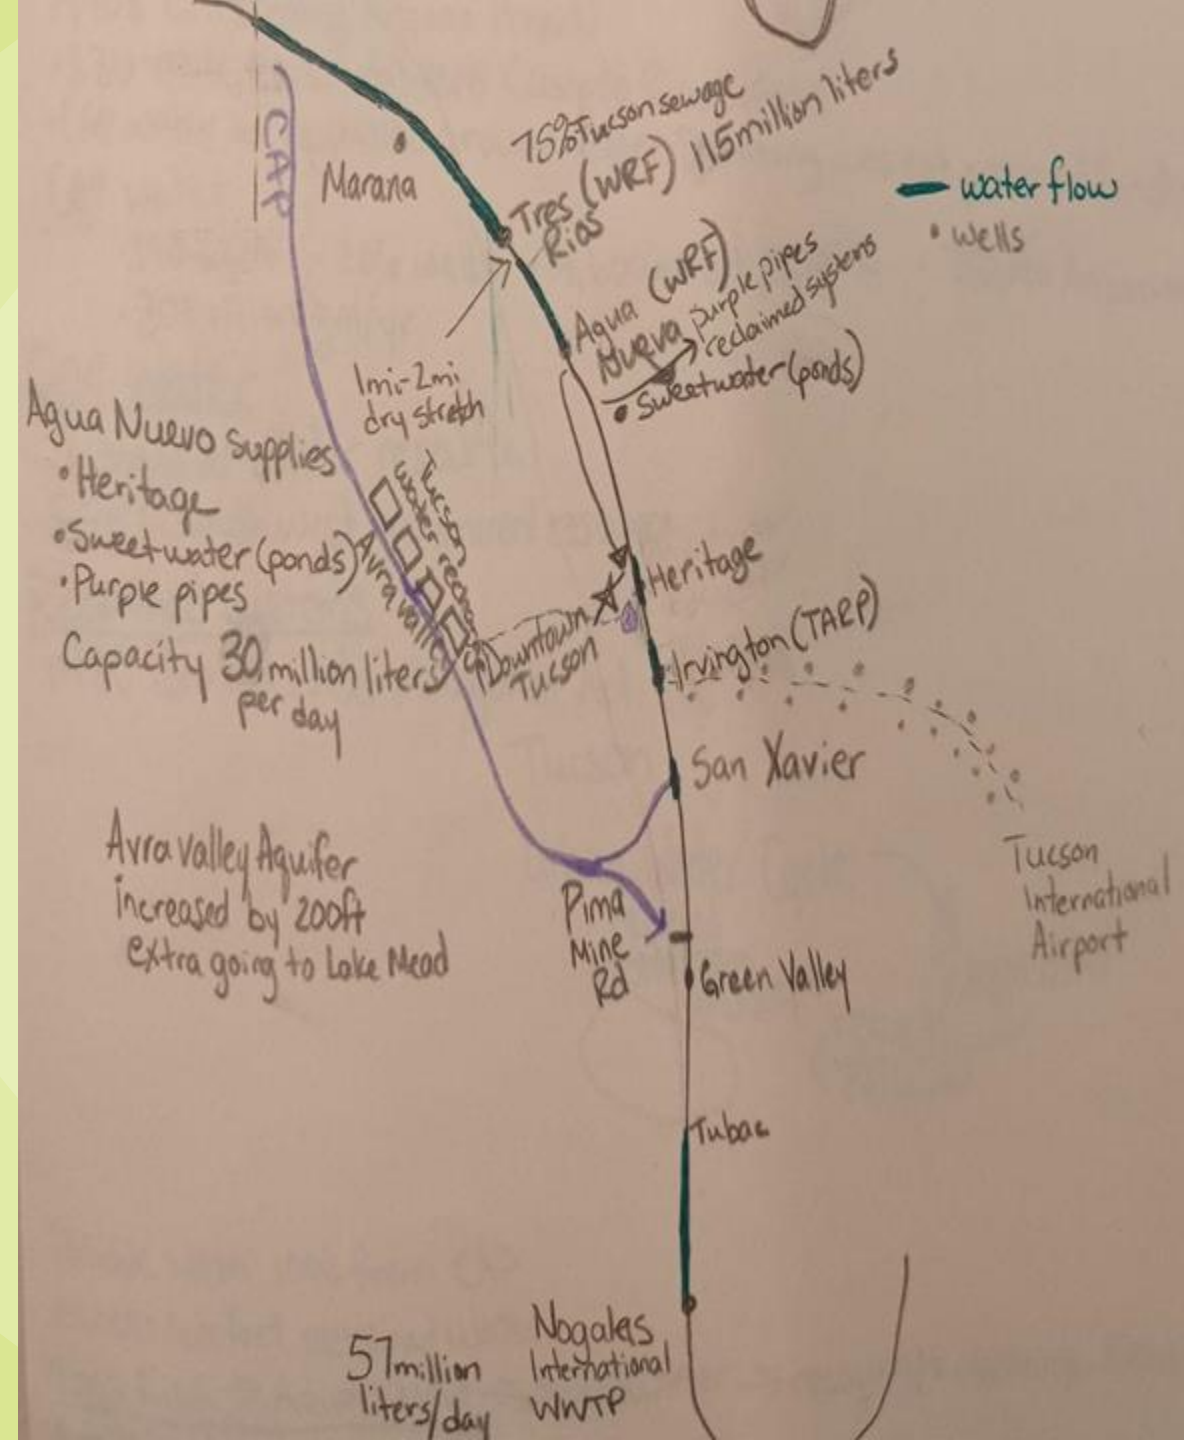 CAP
Marana
75% Tucson sewage
Tres (WRF) 115 million liters
Rios
water flow
wells
Agua (WRF)
Nueva purple pipes
reclaimed systems
Sweetwater (ponds)
1mi-2mi
dry stretch
Agua Nuevo supplies
• Heritage
• Sweetwater (ponds)
• Purple pipes
Capacity 30 million liters
per day
Tucson
water
Avra valley
Downtown
Tucson
Heritage
Irvington (TARP)
San Xavier
Tucson
International
Airport
Avra valley Aquifer
increased by 200ft
extra going to Lake Mead
Pima
Mine
Rd
Green Valley
Tubac
Nogales
International
WWTP
57 million
liters/day